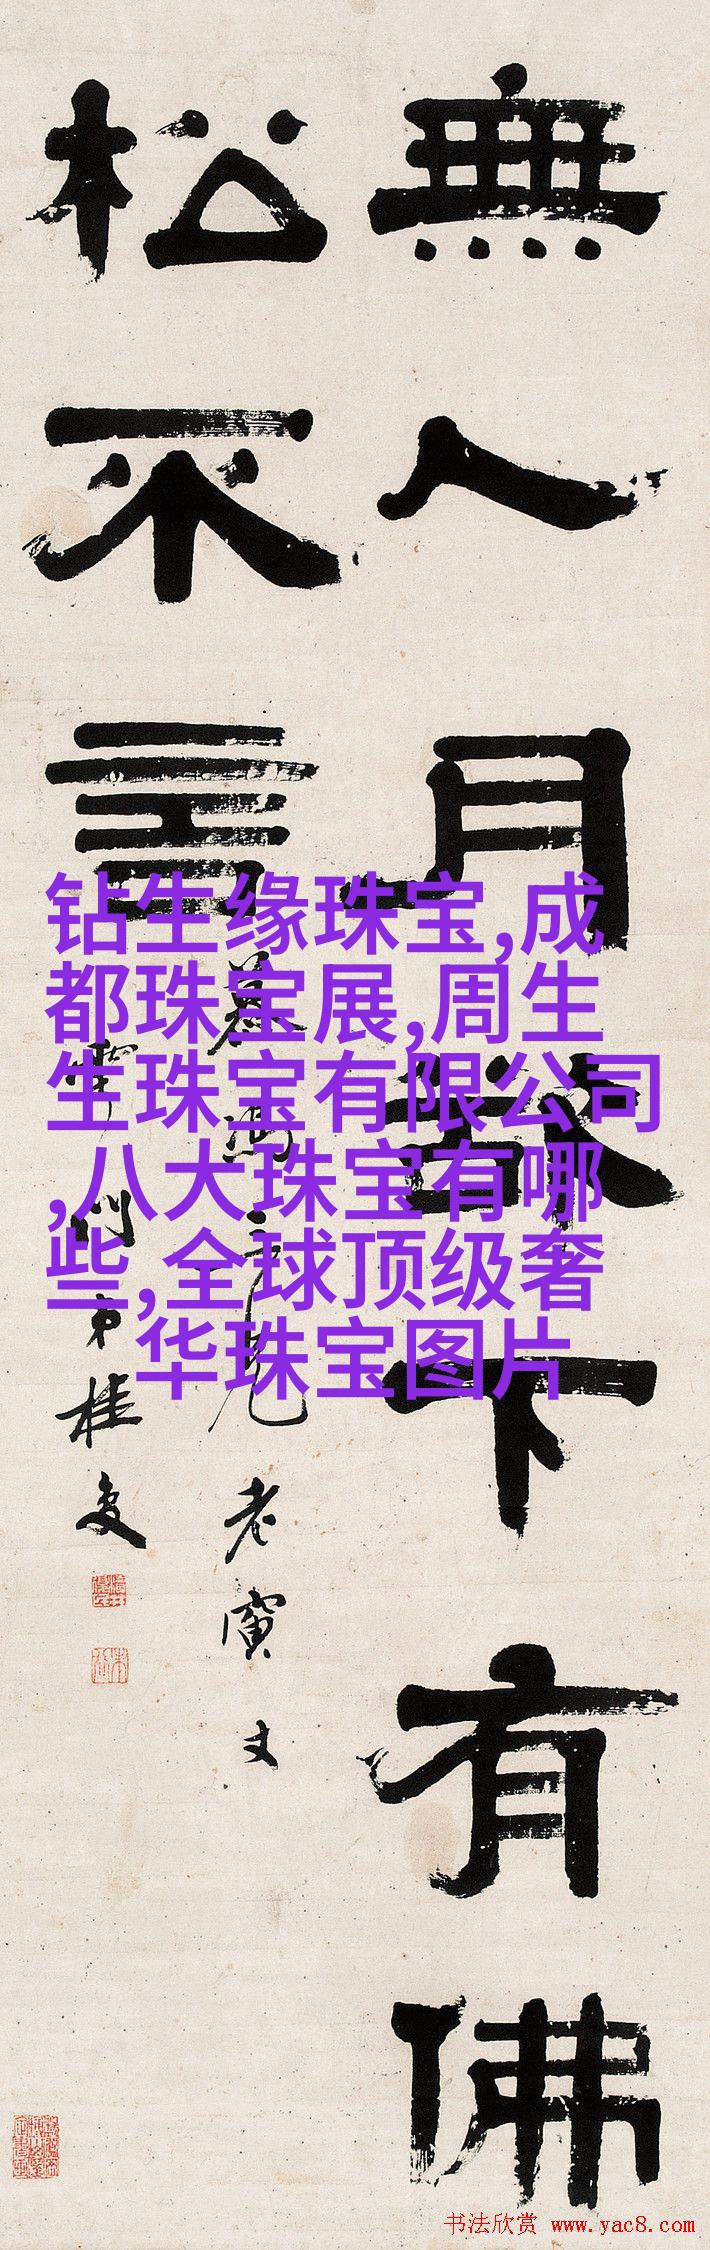 無人月
下有佛
松不言
老寅丈
弟桂
钻生缘珠宝,成
都珠宝展,周生
生珠宝有限公司
,八大珠宝有哪
些,全球顶级奢
华珠宝图片
书法欣赏 www.yac8.com